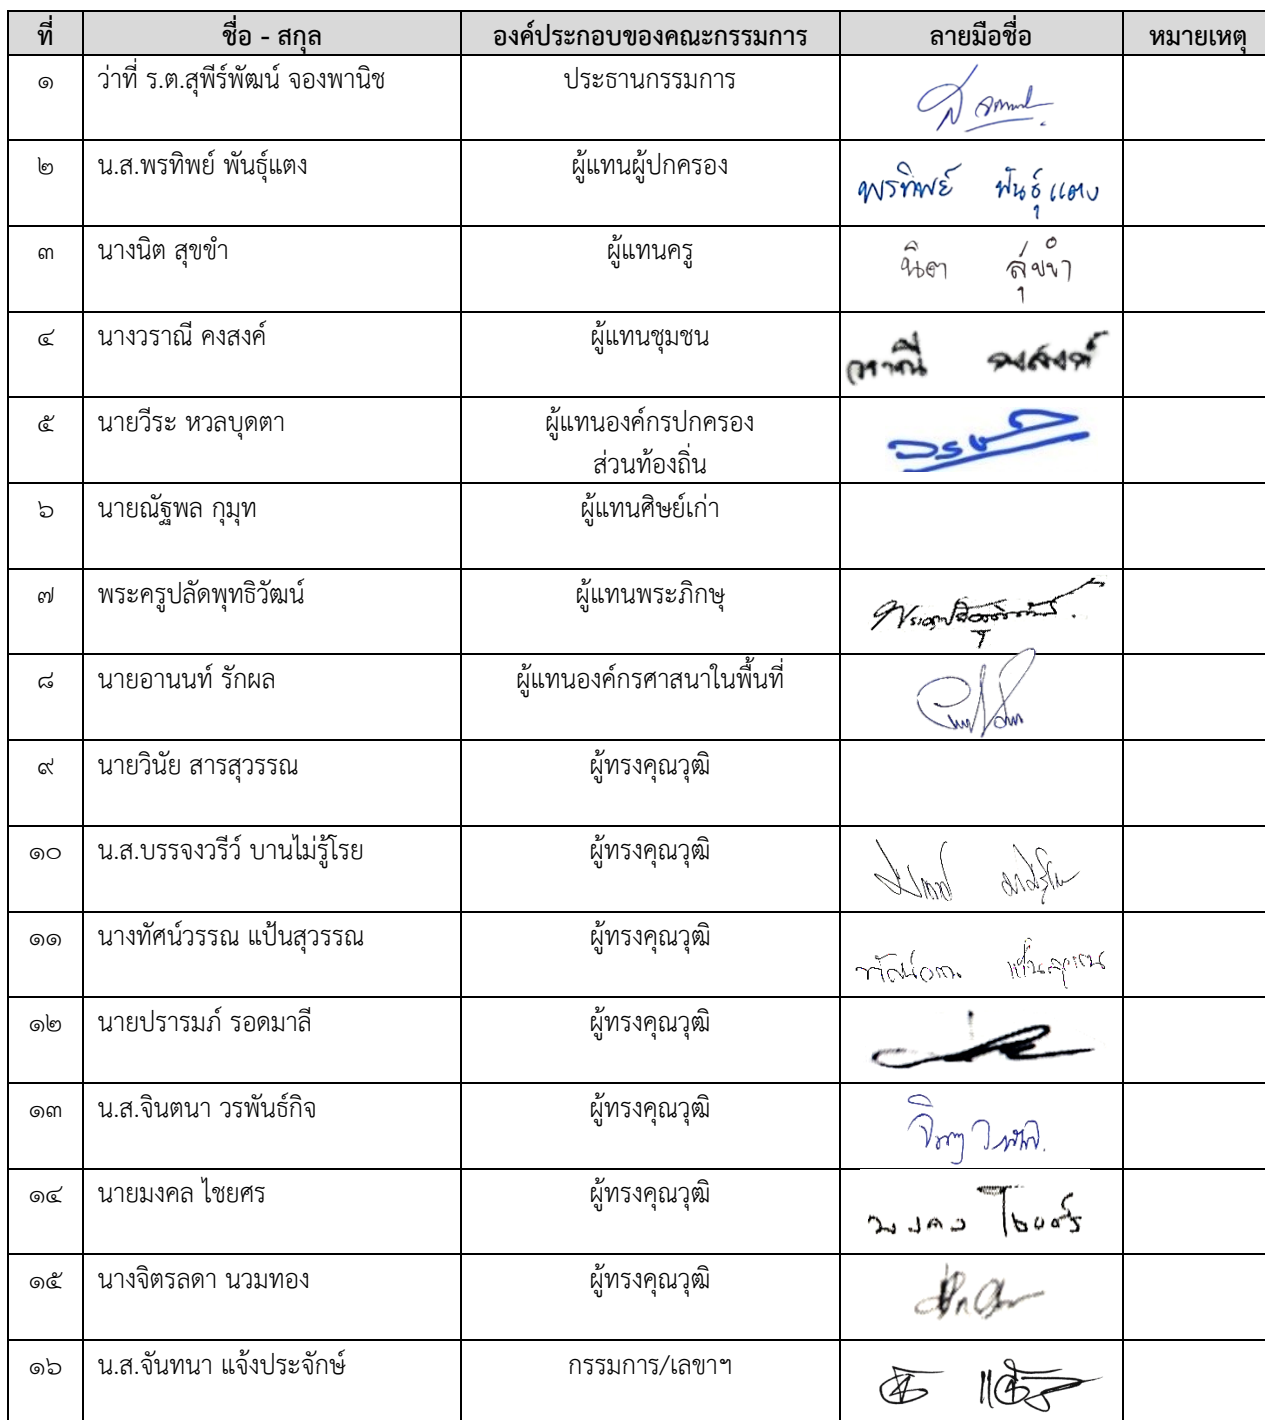 ที่ ชื่อ - สกุล องค์ประกอบของคณะกรรมการ ลายมือชื่อ หมายเหตุ
๑ ว่าที่ ร.ต.สุพีร์พัฒน์ จองพานิช ประธานกรรมการ
๒ น.ส.พรทิพย์ พันธุ์แตง ผู้แทนผู้ปกครอง พรทิพย์ พันธุ์แตง
๓ นางนิต สุขขำ ผู้แทนครู นิต สุขขำ
๔ นางวราณี คงสงค์ ผู้แทนชุมชน วราณี คงสงค์
๕ นายวีระ หวลบุดตา ผู้แทนองค์กรปกครอง
ส่วนท้องถิ่น
๖ นายณัฐพล กุมุท ผู้แทนศิษย์เก่า
๗ พระครูปลัดพุทธิวัฒน์ ผู้แทนพระภิกษุ
๘ นายอานนท์ รักผล ผู้แทนองค์กรศาสนาในพื้นที่
๙ นายวินัย สารสุวรรณ ผู้ทรงคุณวุฒิ
๑๐ น.ส.บรรจงวรีว์ บานไม่รู้โรย ผู้ทรงคุณวุฒิ
๑๑ นางทัศน์วรรณ แป้นสุวรรณ ผู้ทรงคุณวุฒิ
๑๒ นายปรารมภ์ รอดมาลี ผู้ทรงคุณวุฒิ
๑๓ น.ส.จินตนา วรพันธ์กิจ ผู้ทรงคุณวุฒิ
๑๔ นายมงคล ไชยศร ผู้ทรงคุณวุฒิ มงคล ไชยศร
๑๕ นางจิตรลดา นวมทอง ผู้ทรงคุณวุฒิ
๑๖ น.ส.จันทนา แจ้งประจักษ์ กรรมการ/เลขาฯ